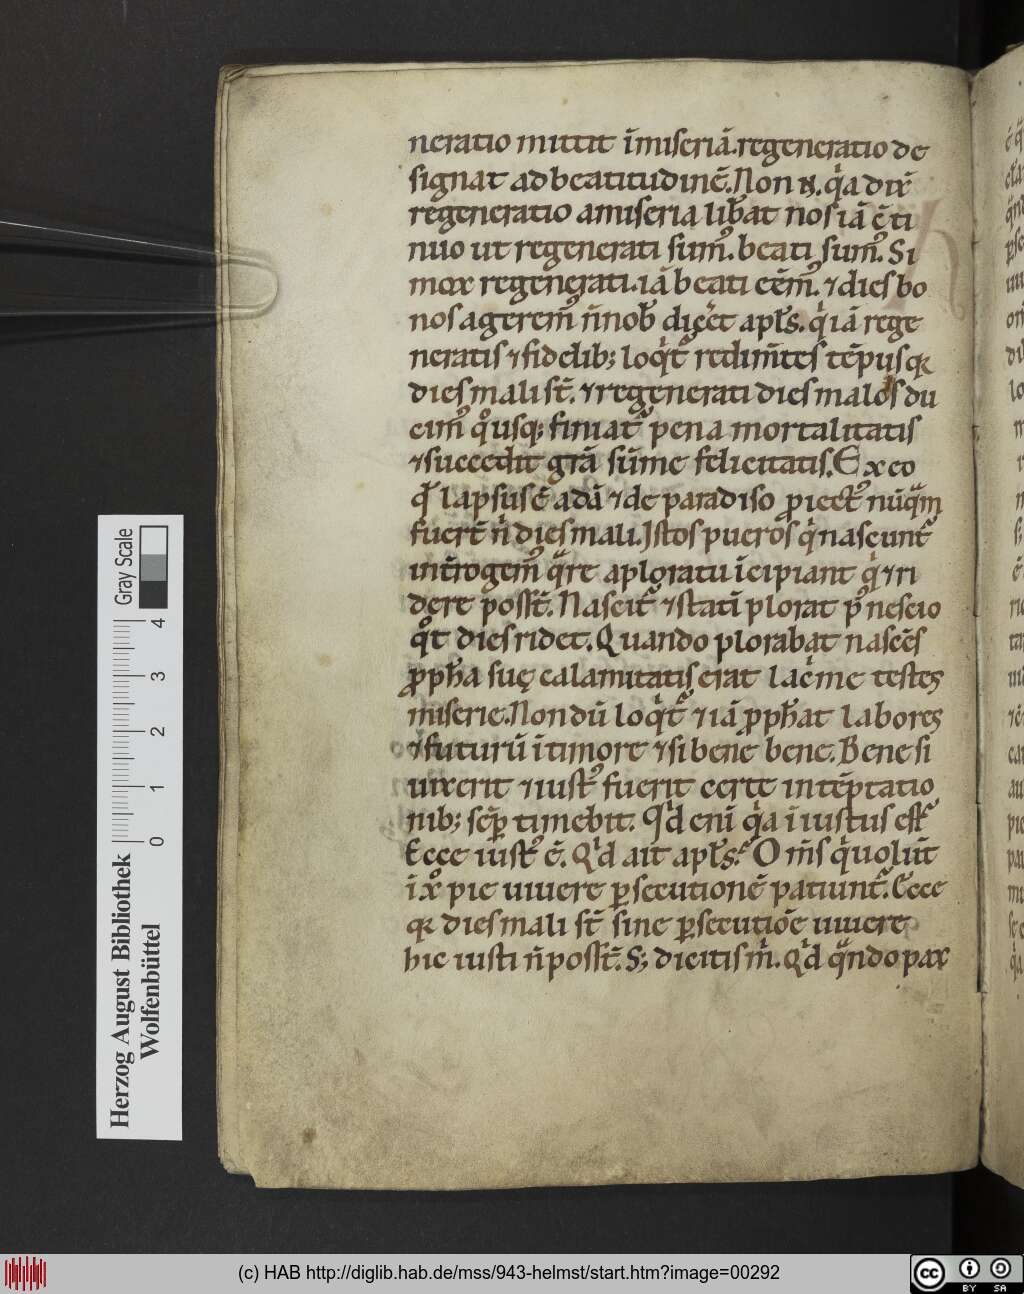 neratio mittit īmiseriā. regeneratio de
signat ad beatitudinē. Non n̄. qͥa dix̄
regeneratio a miseria lib̄at nos iā ēti
nuo ut regenerati sum᷒. beati sum᷒. Si
mox regenerati. iā beati eēm᷒. ⁊ dies bo
nos agerem᷒ n̄ nob̄ diceͬt apl̄s. qͥ iā rege
neratis ⁊ fidelib; loqͥt᷑ redim̄tes tēpus qꝛ
dies mali st̄. ⁊ regenerati dies malos du
cim᷒ qͦusq; finiat᷑ pena mortalitatis
⁊ succedit grā sūme felicitatis. Ex eo
qͦ lapsus ē adā ⁊ de paradiso ꝓiect᷒ nūqᷓm
fuert̄ n̄ dies mali. Istos pueros qͥ nascunt᷑
int̄rogem᷒ qᷓre a ploratu īcipiant qͥ ⁊ ri
dere poss̄t. Nascit᷑ ⁊ statī plorat p᷒ nescio
qͦt dies ridet. Quando plorabat nascēs
ꝓph̄a suę calamitatis erat lacͥme testes
miserie. Nondū loqͥt᷑ ⁊ iā ꝓph̄at labores
⁊ futurū ī timore ⁊ si bene bene. Bene si
uixerit ⁊ iust᷒ fuerit certe in tēptatio
nib; sēp timebit. Qͥd enī qͥa īiustus est᷑
Ecce iust᷒ ē. Qͥd ait apl̄s? Om̄s qͥ uolūt
ī xͦ pie uiuere ꝑsecutionē patiunt᷑. Ecce
qꝛ dies mali st̄ sine ꝑsecutiōe uiuere
hic iusti n̄ poss̄t. S; dicitis mͥ. Qͥd qᷓndo pax
Herzog August Bibliothek
Wolfenbüttel
Gray Scale
0 1 2 3 4
(c) HAB http://diglib.hab.de/mss/943-helmst/start.htm?image=00292
cc BY SA